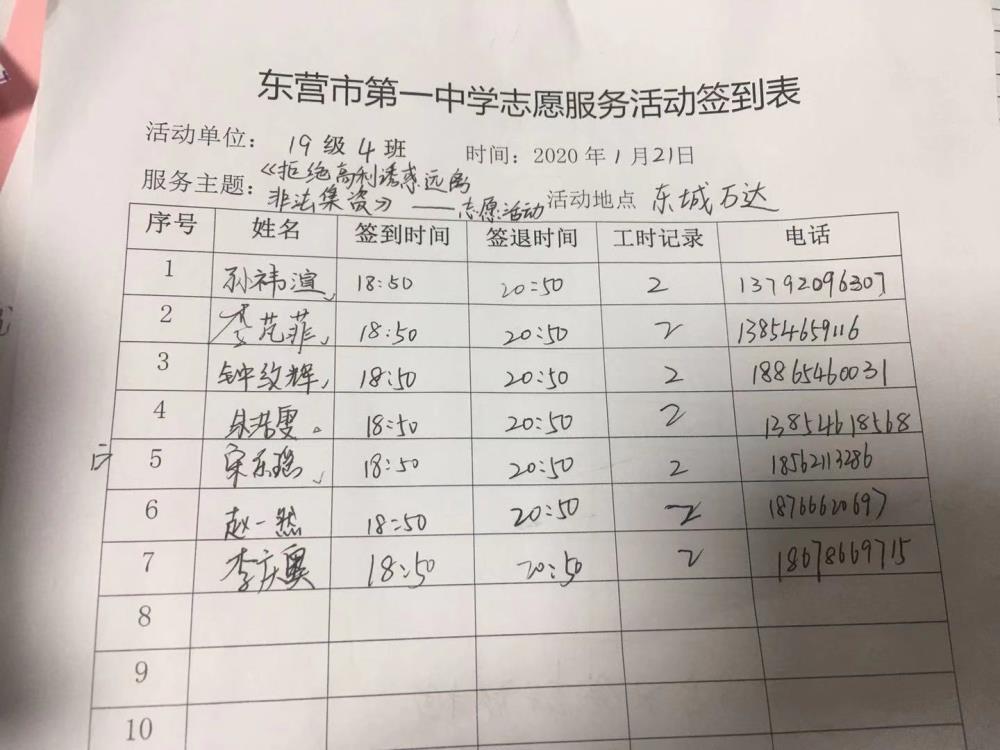 东营市第一中学志愿服务活动签到表
活动单位： 19级4班 时间：2020年1月21日
服务主题：《拒绝高利诱惑远离
非法集资》——志愿活动 活动地点 东城万达
序号 姓名 签到时间 签退时间 工时记录 电话
1 孙祎渲 18:50 20:50 2 13792096307
2 李芃菲 18:50 20:50 2 13854659116
3 钟纹辉 18:50 20:50 2 18865460031
4 朱浩雯 18:50 20:50 2 13854618568
5 宋东瑞 18:50 20:50 2 18562113286
6 赵一然 18:50 20:50 2 18766620697
7 李庆奥 18:50 20:50 2 18678669715
8
9
10